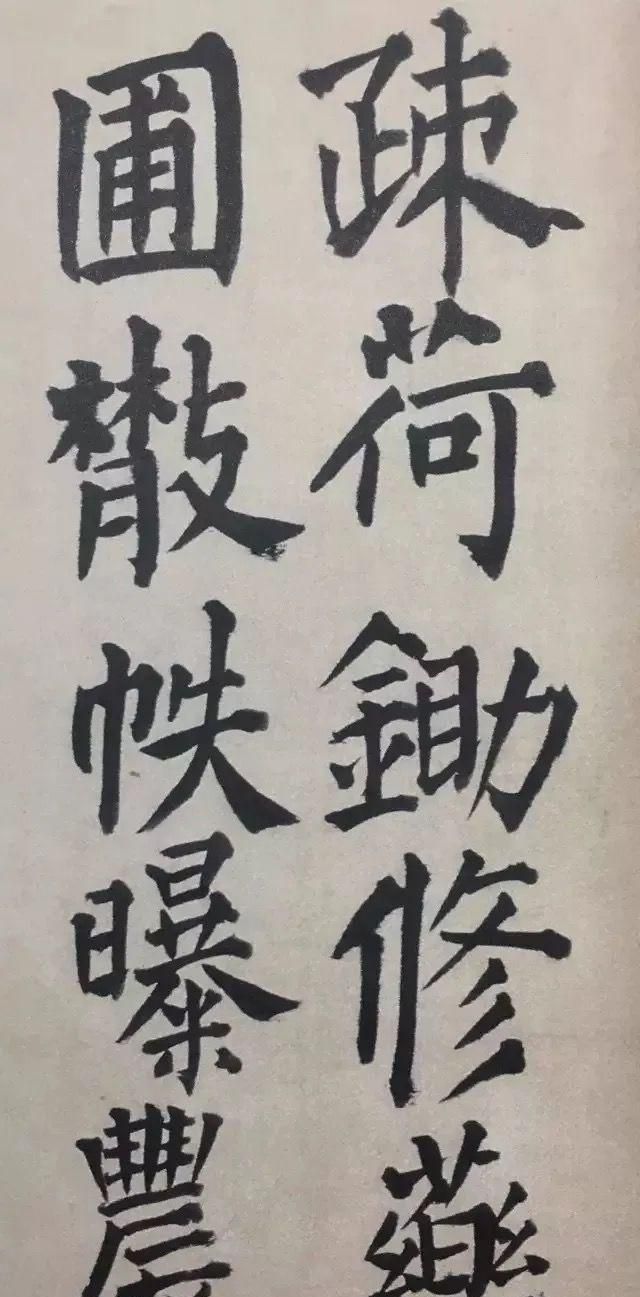 疎荷鋤修藥
圃散帙曝農